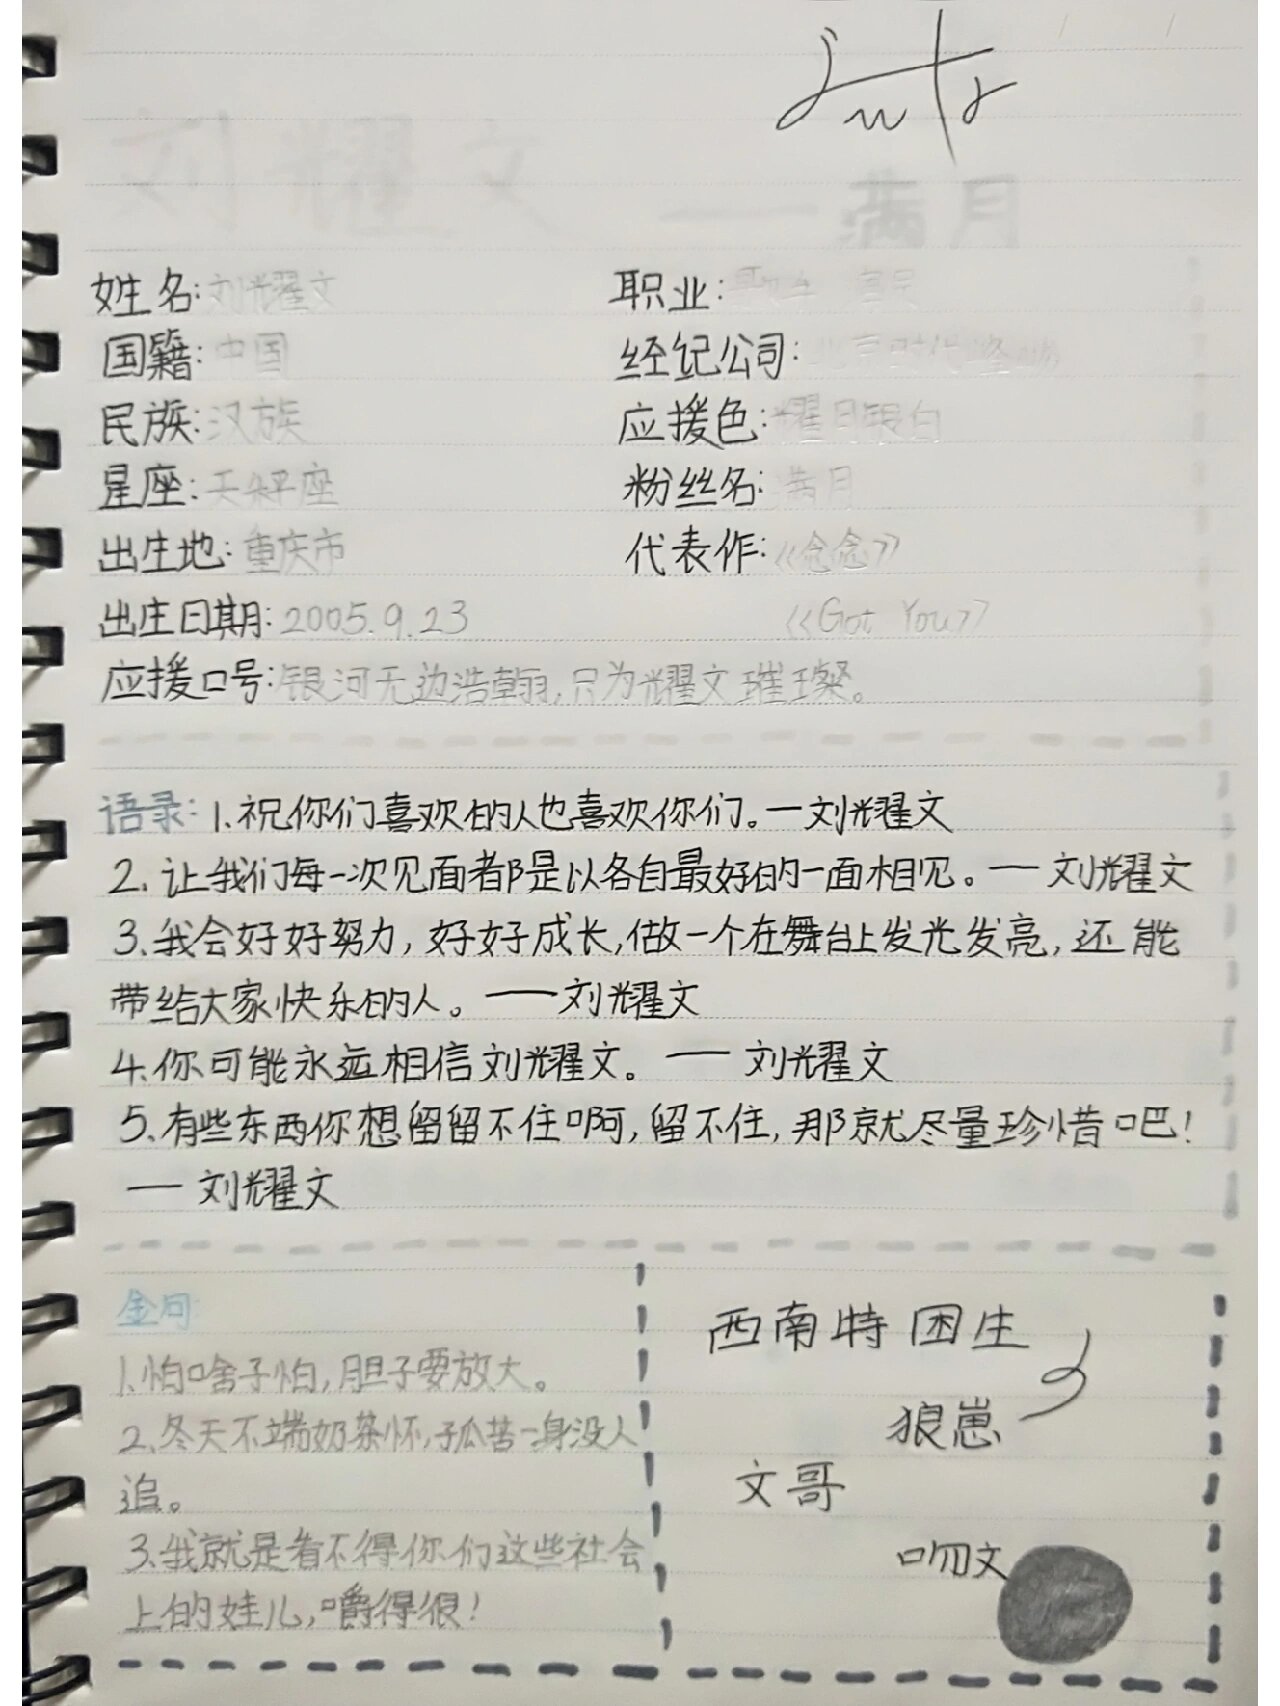 刘耀文
——满月
姓名:刘耀文 职业:歌手 演员
国籍:中国 经纪公司:北京时代峰峻
民族:汉族 应援色:耀月银白
星座:天秤座 粉丝名:满月
出生地:重庆市 代表作:《念念》
出生日期:2005.9.23 《Got You》
应援口号:银河无边浩翰,只为耀文璀璨。
语录:1.祝你们喜欢的人也喜欢你们。—刘耀文
2.让我们每一次见面都是以各自最好的一面相见。——刘耀文
3.我会好好努力,好好成长,做一个在舞台上发光发亮,还能
带给大家快乐的人。——刘耀文
4.你可能永远相信刘耀文。——刘耀文
5.有些东西你想留留不住啊,留不住,那就尽量珍惜吧!
——刘耀文
金句:
1.怕啥子怕,胆子要放大。
2.冬天不端奶茶杯,孤苦一身没人
追。
3.我就是看不得你们这些社会
上的娃儿,嚼得很!
西南特困生
狼崽
文哥
吻文